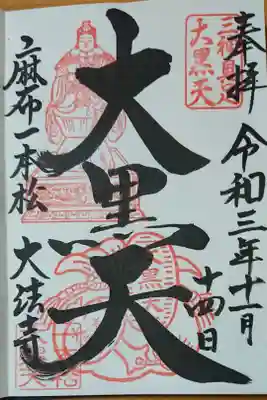 奉拝
令和三年十一月
十四日
三神具足
大黒天
大黒天
麻布一本松
大法寺